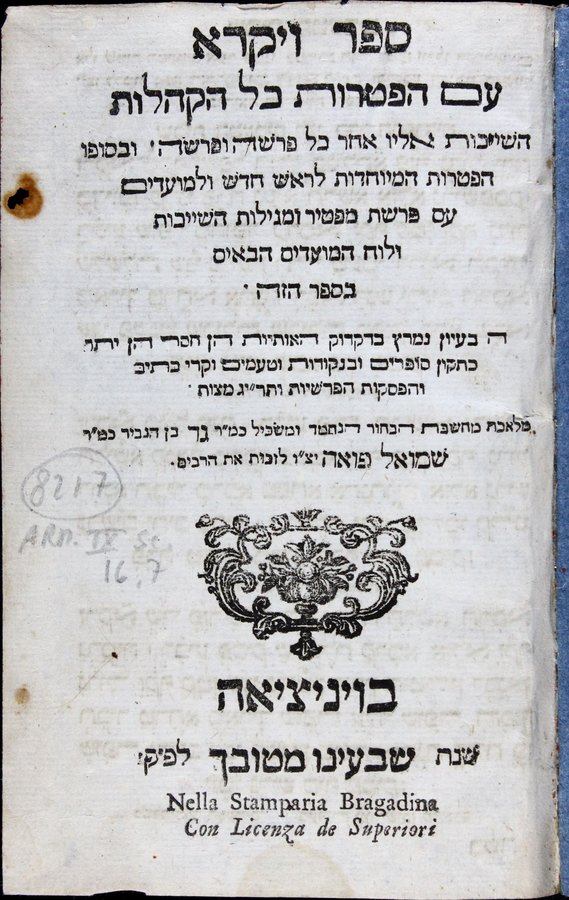 ספר ויקרא
עם הפטרות כל הקהלות
השייכות אליו אחר כל פרשה ופרשה ׳ ובסופו
הפטרות המיוחדות לראש חדש ולמועדים
עם פרשת מפטיר ומגילות השייכות
ולוח המועדים הבאים
בספר הזה ׳
ה בעיון נמרץ בדקדוק האותיות הן חסר הן יתר
כתקון סופרים ובנקודות וטעמים וקרי כתיב
והפסקות הפרשיות ותר״יג מצות ׳
מלאכת מחשבת הבחור הנחמד ומשכיל כמ״ר גד בן הגביר כמ״ר
שמואל פואה יצ״ו לזכות את הרבים ׳
8217
ARM. IV Sc.
16.7
בויניציאה
שנת שבעינו מטובך לפ״ק ׃
Nella Stamparia Bragadina
Con Licenza de Superiori